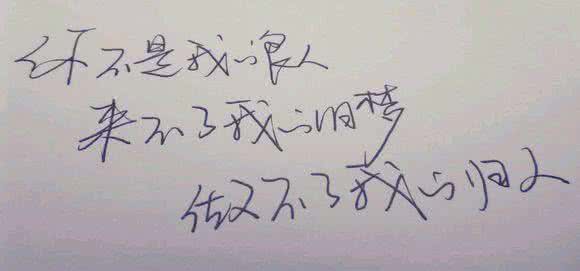 你不是我的良人
来不了我的旧梦
做不了我的归人